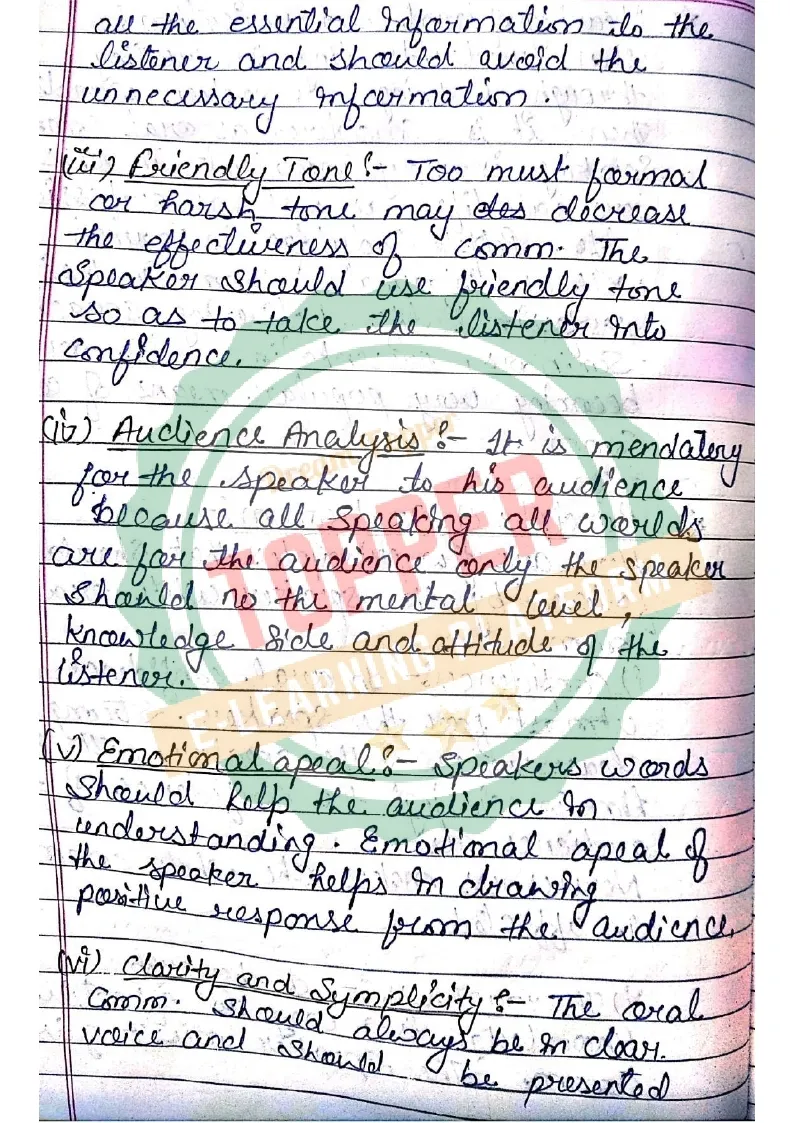 all the essential Information to the
listener and should avoid the
unnecessary Information.
(iii) Friendly Tone:- Too must formal
or harsh tone may des decrease
the effectiveness of comm. The
Speaker should use friendly tone
so as to take the listener Into
Confidence.
(iv) Audience Analysis:- It is mendatory
for the speaker to his audience
because all speaking all words
are for the audience only the speaker
should no the mental level,
knowledge side and attitude of the
listener.
(v) Emotional apeal:- Speakers words
should help the audience In
understanding. Emotional apeal of
the speaker helps In drawing
positive response from the audience.
(vi) Clarity and Symplicity:- The oral
Comm. should always be In clear
voice and should be presented
TOPPER
E-LEARNING PLATFORM